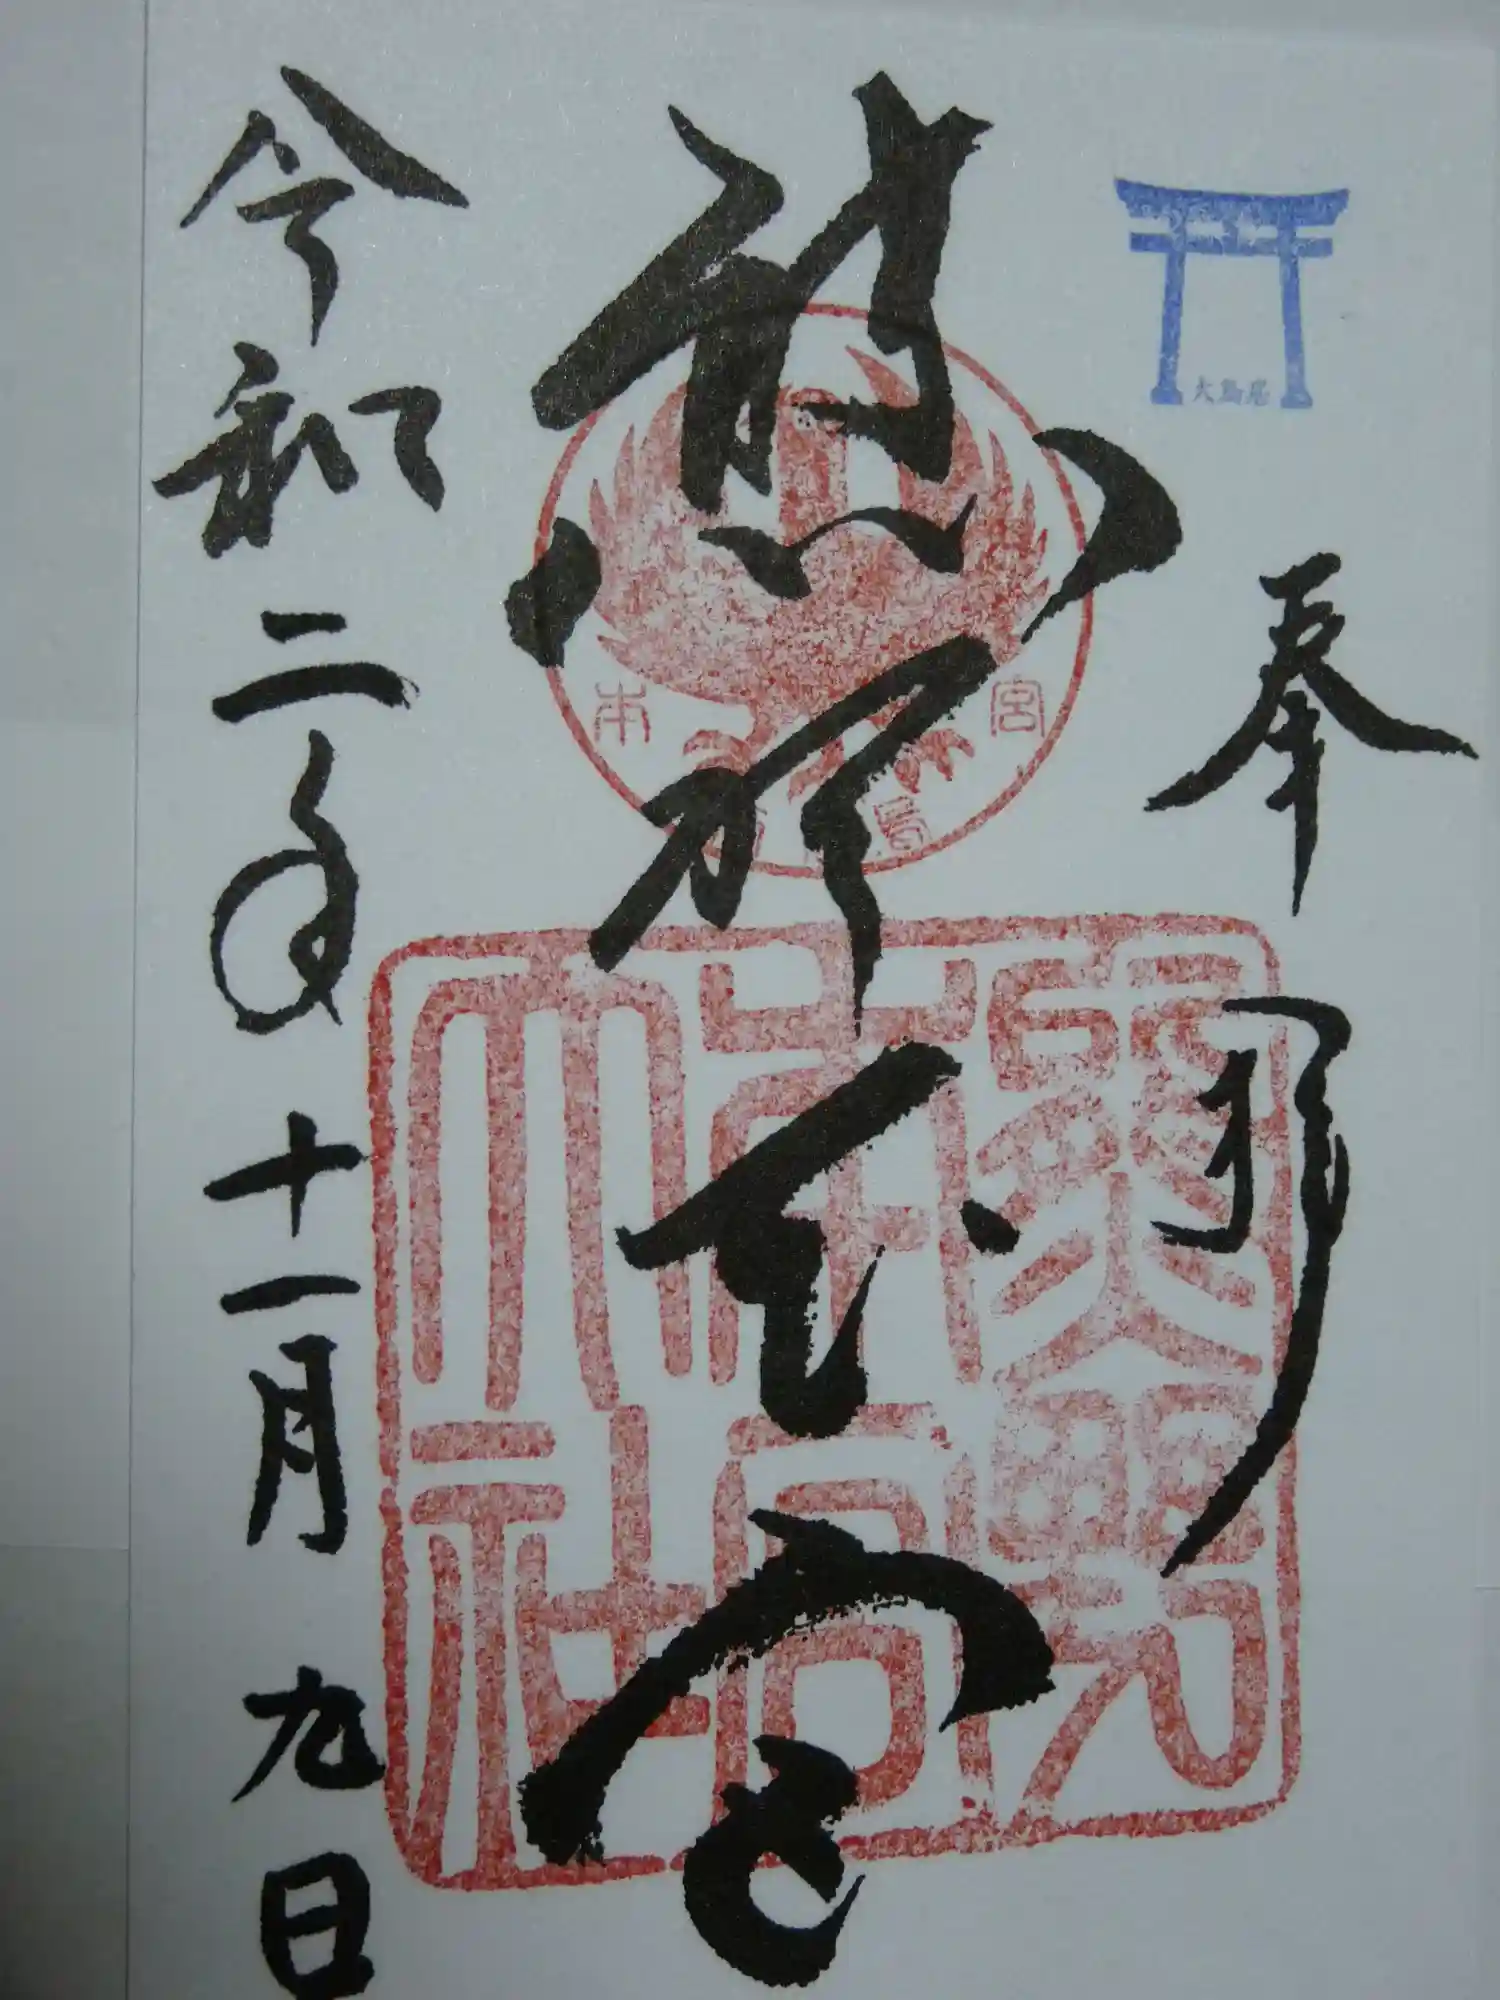 大鳥居
奉拝
熊野本宮
本宮
熊野本宮大社
令和二年十一月九日